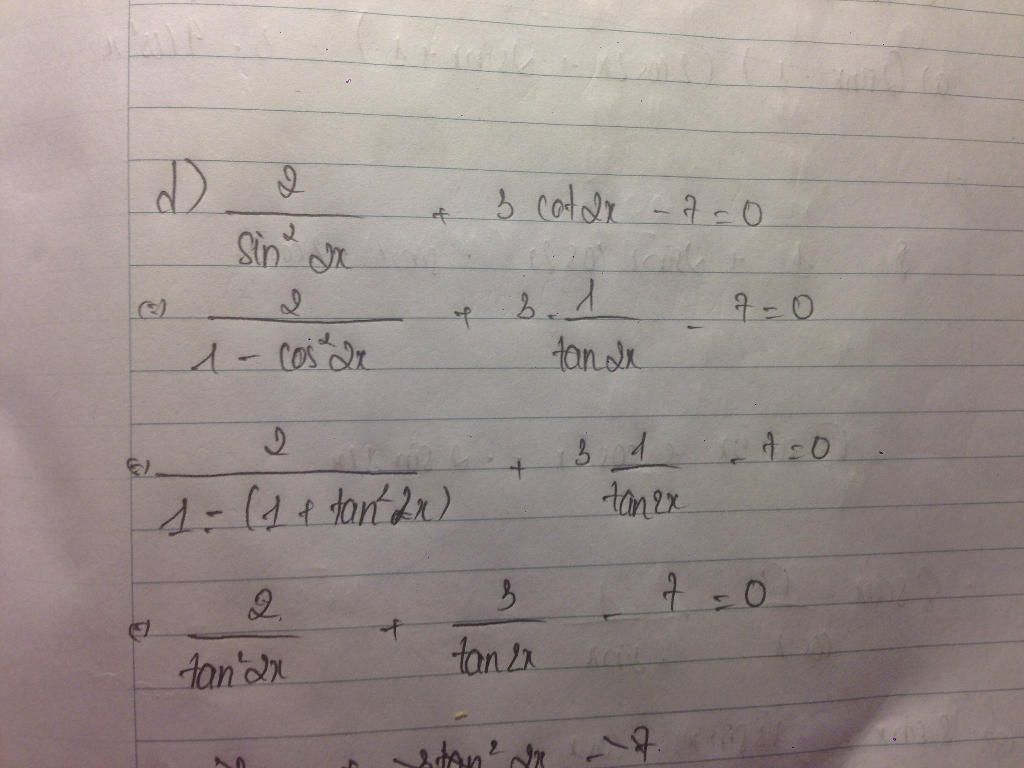 d) 2/sin² 2x + 3 cot 2x - 7 = 0
(=) 2/(1 - cos² 2x) + 3 . 1/tan 2x - 7 = 0
(=) 2/(1 - (1 + tan² 2x)) + 3 1/tan 2x - 7 = 0
(=) 2/tan² 2x + 3/tan 2x - 7 = 0
tan² 2x - 7